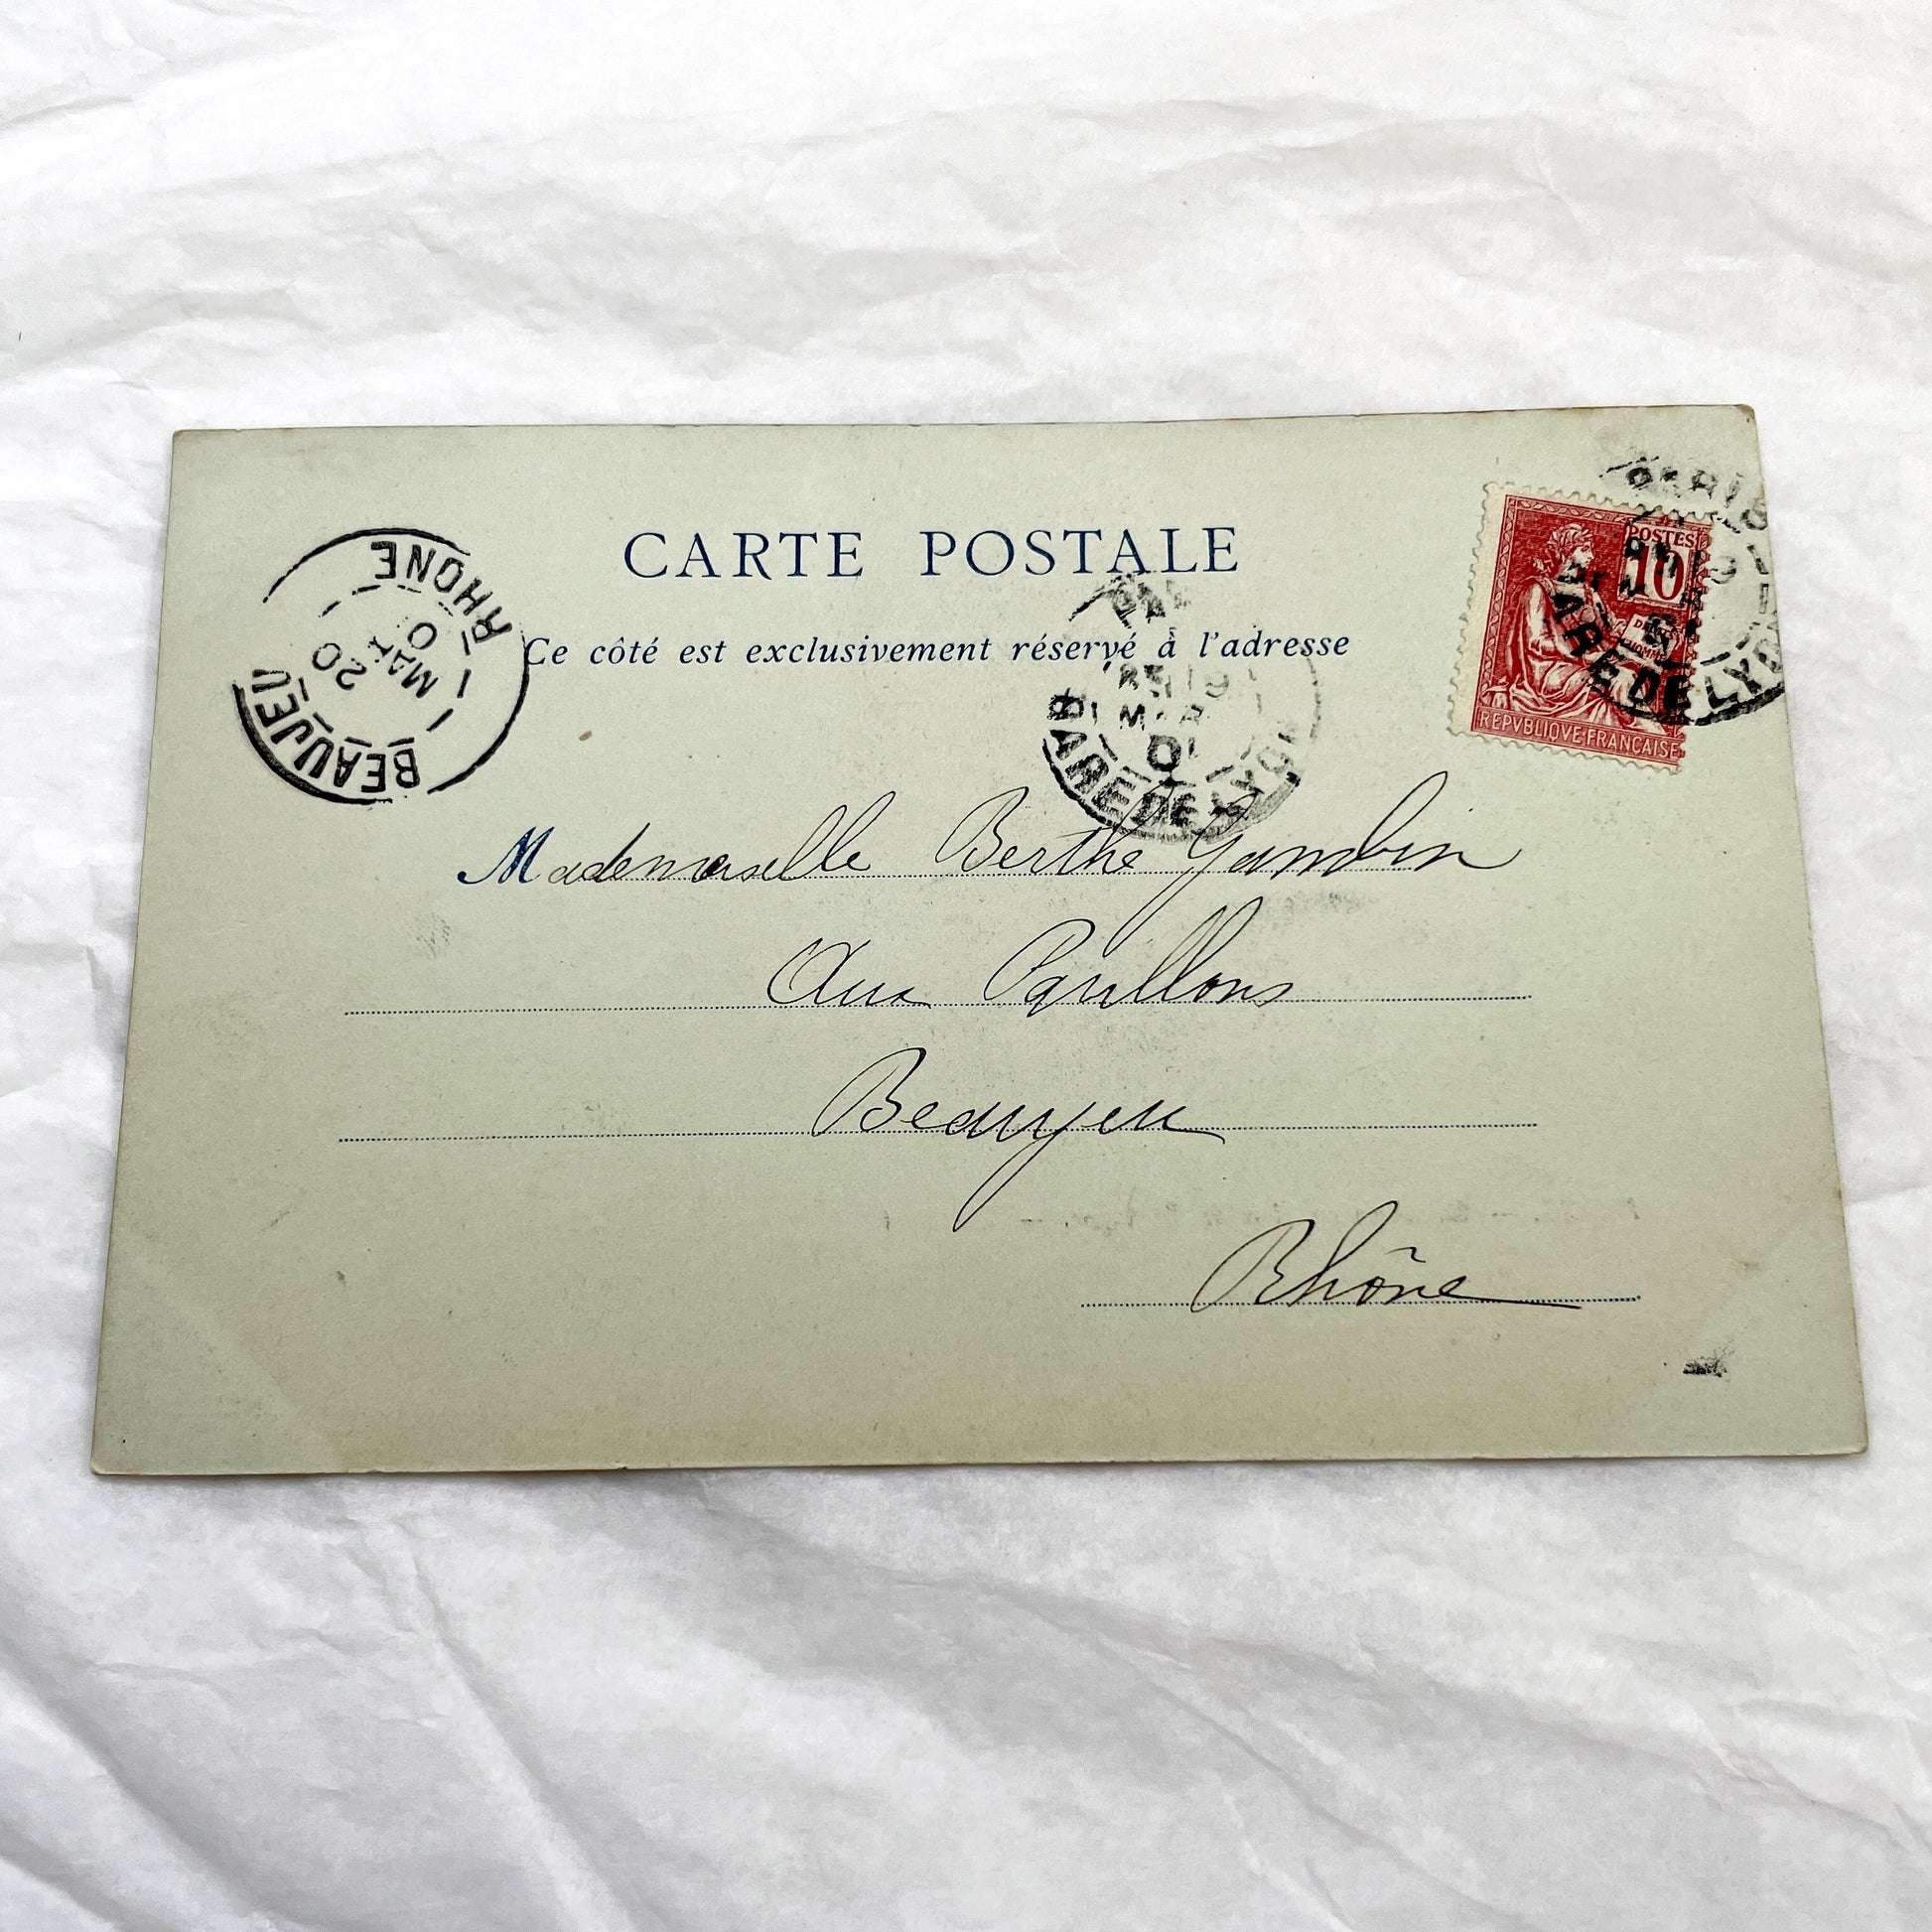 CARTE POSTALE
Ce côté est exclusivement réservé à l'adresse
BEAUJEU RHONE
20
MAI
01
PARIS
19
MAI
01
GARE DE LYON
POSTES
10
DROITS
DE
L'HOMME
REPVBLIQVE·FRANÇAISE
PARIS
19
GARE DE LYON
Mademoiselle Berthe Gambin
Aux Pavillons
Beaujeu
Rhône